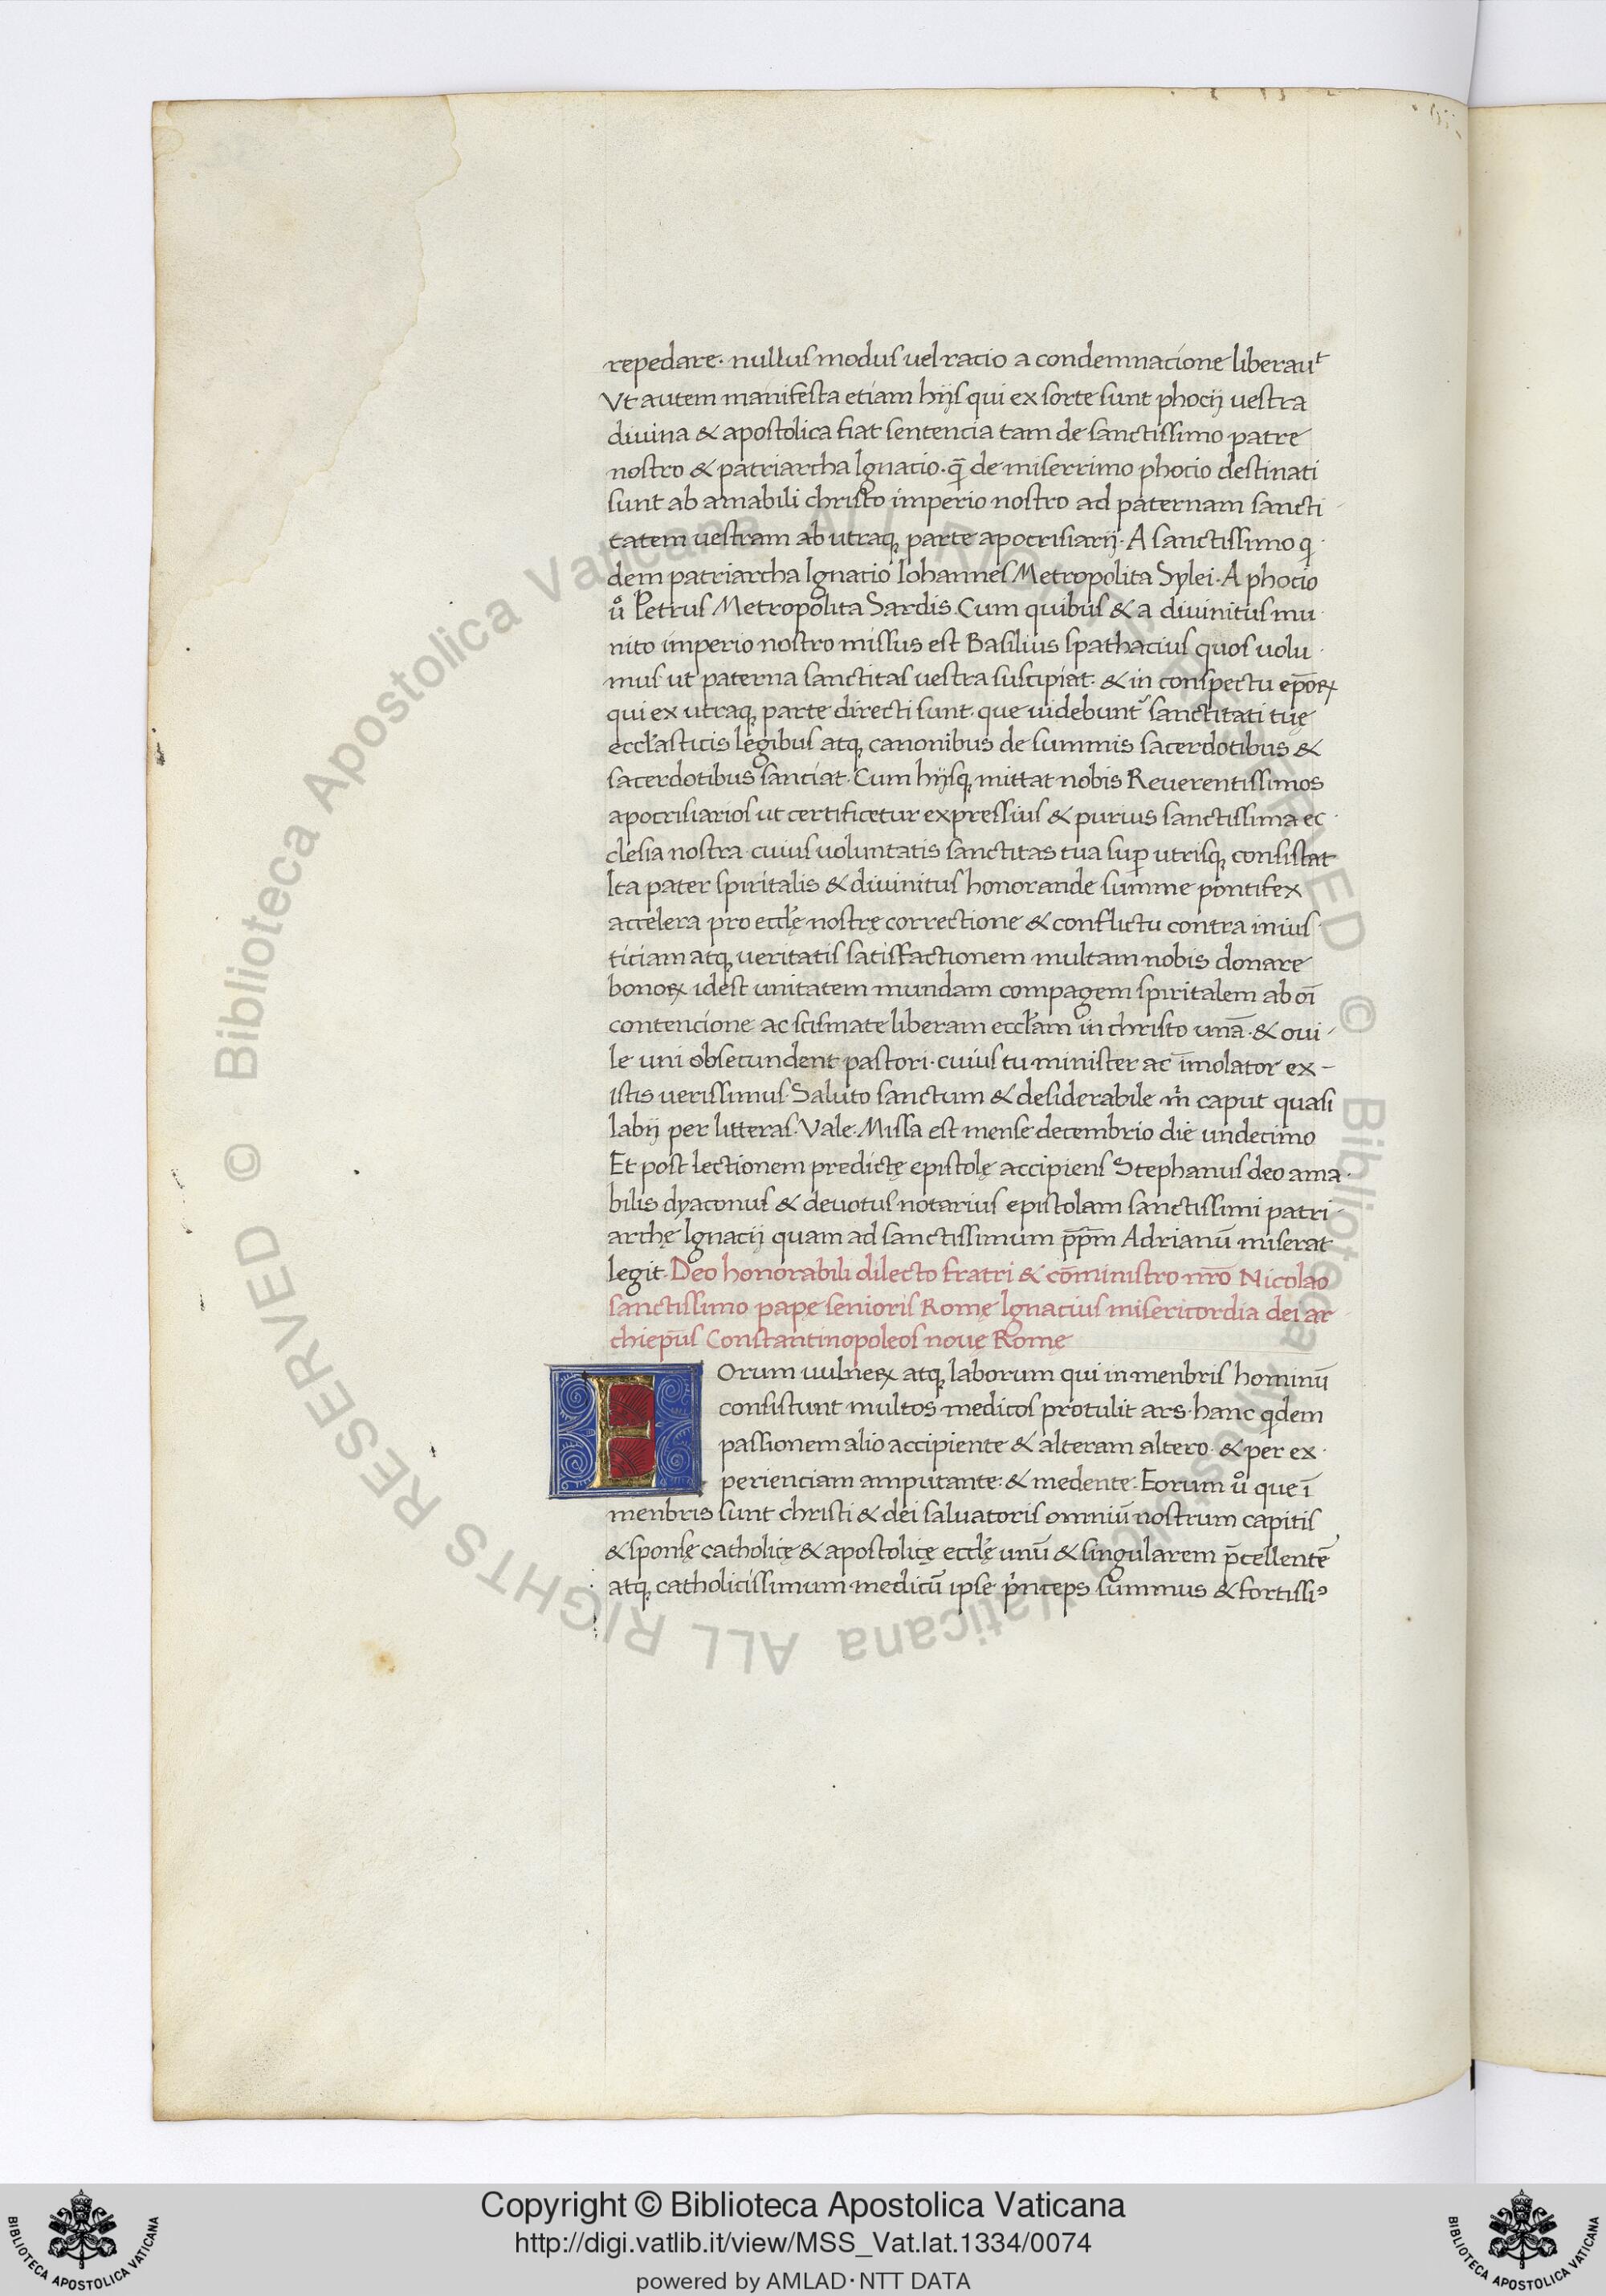 repedare· nullus modus uel racio a condemnacione liberauᵗ
Vt autem manifesta etiam hijs qui ex sorte sunt phocij uestra
diuina & apostolica fiat sentencia tam de sanctissimo patre
nostro & patriarcha Ignacio· q̄ de miserrimo phocio destinati
sunt ab amabili christo imperio nostro ad paternam sancti
tatem uestram ab utraqꝫ parte apocrisiarij· A sanctissimo q
dem patriarcha Ignacio Iohannes Metropolita Sylei· A phocio
uͦ Petrus Metropolita Sardis. Cum quibus & a diuinitus mu
nito imperio nostro missus est Basilius spathacius quos uolu
mus ut paterna sanctitas uestra suscipiat· & in conspectu ep̄oꝝ
qui ex utraqꝫ parte directi sunt· que uidebunt᷑ sanctitati tuę
eccl̄asticis legibus atqꝫ canonibus de summis sacerdotibus &
sacerdotibus sanciat· Cum hijsqꝫ mittat nobis Reuerentissimos
apocrisiarios ut certificetur expressius & purius sanctissima ec
clesia nostra· cuius uoluntatis sanctitas tua suꝑ utrisqꝫ consistat
Ita pater spiritalis & diuinitus honorande summe pontifex
accelera pro eccl̄ę nostrę correctione & conflictu contra inius
ticiam atqꝫ ueritatis satisfactionem multam nobis donare
bonoꝝ idest unitatem mundam compagem spiritalem ab oī
contencione ac scismate liberam eccl̄am in christo unā· & oui
le uni obsecundent pastori· cuius tu minister ac īmolator ex-
istis uerissimus· Saluto sanctum & desiderabile m̄ caput quasi
labij per litteras· Vale· Missa est mense decembrio die undecimo
Et post lectionem predictę epistolę accipiens Stephanus deo ama
bilis dyaconus & deuotus notarius epistolam sanctissimi patri
archę Ignacij quam ad sanctissimum p̄p̄m Adrianū miserat
legit· Deo honorabili dilecto fratri & cōministro nr̄o Nicolao
sanctissimo papę senioris Romę Ignacius misericordia dei ar
chiep̄us Constantinopoleos nouę Romę
EOrum uulneꝝ atqꝫ laborum qui in menbris hominū
consistunt multos medicos protulit ars· hanc qdem
passionem alio accipiente & alteram altero· & per ex
perienciam amputante· & medente· Eorum uͦ que ī
menbris sunt christi & dei saluatoris omniū nostrum capitis
& sponsę catholicę & apostolicę eccl̄ę unū & singularem p̄cellentē
atqꝫ catholicissimum medicū ipse pⁱnceps summus & fortissiꝰ
Copyright © Biblioteca Apostolica Vaticana
http://digi.vatlib.it/view/MSS_Vat.lat.1334/0074
powered by AMLAD·NTT DATA
BIBLIOTECA APOSTOLICA VATICANA
BIBLIOTECA APOSTOLICA VATICANA
© Biblioteca Apostolica Vaticana ALL RIGHTS RESERVED
© Biblioteca Apostolica Vaticana ALL RIGHTS RESERVED